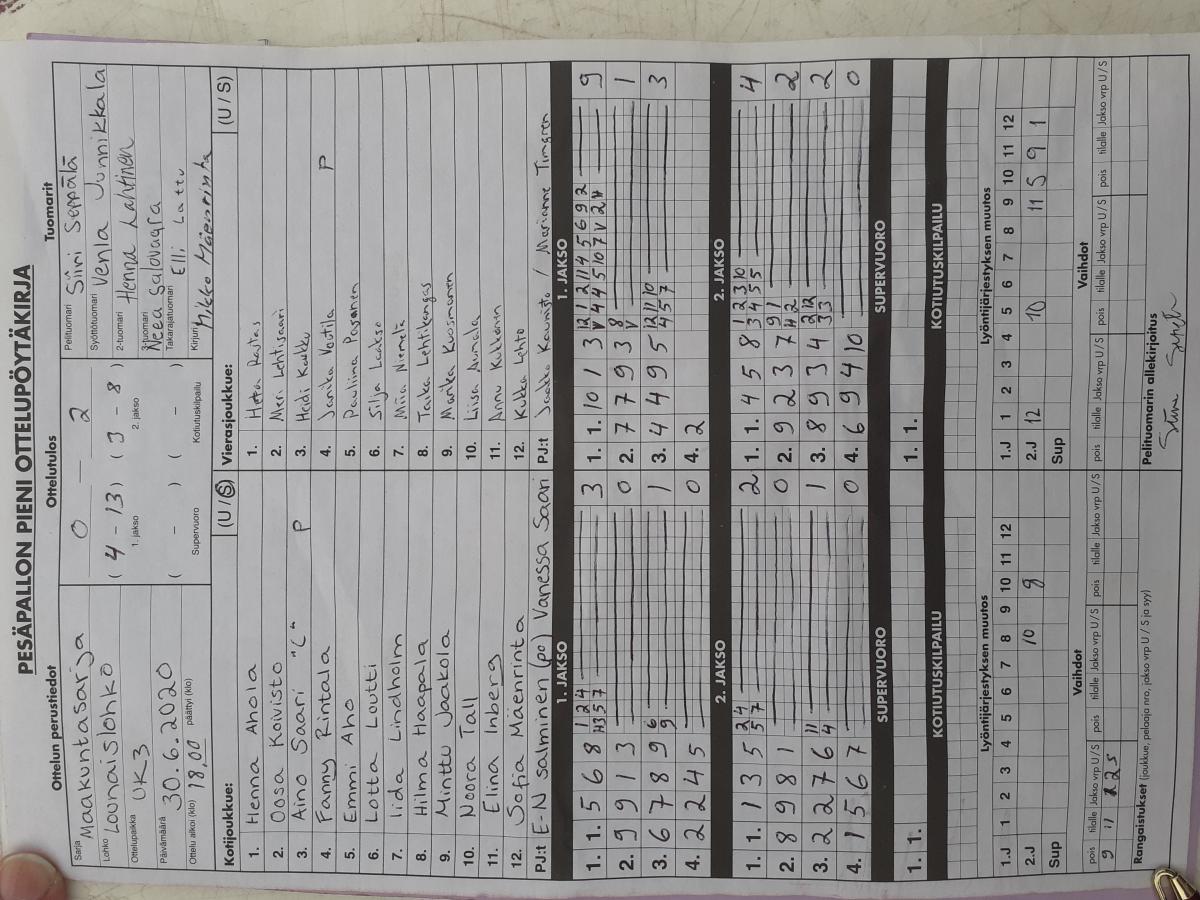 PESÄPALLON PIENI OTTELUPÖYTÄKIRJA
Ottelun perustiedot
Ottelutulos
Tuomarit
Sarja Maakuntasarja
Lohko Lounaislohko
Ottelupaikka UK3
Päivämäärä 30.6.2020
Ottelu alkoi (klo) 18,00 päättyi (klo)
0 – 2
( 4 – 13 ) ( 3 – 8 )
1. jakso 2. jakso
( – ) ( – )
Supervuoro Kotiutuskilpailu
Pelituomari Siini Seppälä
Syöttötuomari Venla Junnikkala
2-tuomari Henna Lahtinen
3-tuomari Neea Salovaara
Takarajatuomari Elli Lattu
Kirjuri Mikko Mäenrinta
Kotijoukkue: (U / S)
1. Henna Ahola
2. Oosa Koivisto
3. Aino Saari "C" P
4. Fanny Rintala
5. Emmi Aho
6. Lotta Loutti
7. Iida Lindholm
8. Hilma Haapala
9. Minttu Jaakola
10. Noora Tall
11. Elina Inberg
12. Sofia Mäenrinta
PJ:t E-N Salminen (po) Vanessa Saari
Vierasjoukkue: (U / S)
1. Heta Rastas
2. Meri Lehtisaari
3. Heidi Kaukku
4. Janika Vastila P
5. Pauliina Pasanen
6. Silja Laakso
7. Miia Niemelä
8. Taika Lehtikangas
9. Marika Kuosmanen
10. Liisa Aumala
11. Annu Kukkonen
12. Kukka Lehto
PJ:t Jaakko Kaunisto / Marianne Timgren
1. JAKSO
1. 1. 5 6 8 1 2 4 3
H 3 5 7
2. 9 9 1 3 0
3. 6 7 8 9 6 1
9
4. 2 2 4 5 0
2. JAKSO
1. 1. 1 3 5 2 4 2
5 7
2. 8 9 8 1 0
3. 2 2 7 6 11 1
4
4. 1 5 6 7 0
SUPERVUORO
1. 1.
KOTIUTUSKILPAILU
Lyöntijärjestyksen muutos
1.J 1 2 3 4 5 6 7 8 9 10 11 12
2.J 10 9
Sup
Vaihdot
pois tilalle Jakso vrp U / S pois tilalle Jakso vrp U / S pois tilalle Jakso vrp U / S
9 11 2 S
Rangaistukset (joukkue, pelaaja nro, jakso vrp U / S ja syy)
1. JAKSO
1. 1. 10 1 3 12 1 2 11 4 5 6 9 2 9
V 4 4 5 10 7 V 2 H
2. 7 7 9 3 8 1
V
3. 4 4 9 5 12 11 10 3
4 5 7
4. 2
2. JAKSO
1. 1. 4 5 8 1 2 3 10 4
3 4 5 5
2. 9 2 3 7 9 1 2
H 2
3. 8 9 3 4 2 12 2
3 3
4. 6 9 4 10 0
SUPERVUORO
1. 1.
KOTIUTUSKILPAILU
Lyöntijärjestyksen muutos
1.J 1 2 3 4 5 6 7 8 9 10 11 12
2.J 12 10 11 5 9 1
Sup
Vaihdot
pois tilalle Jakso vrp U / S pois tilalle Jakso vrp U / S pois tilalle Jakso vrp U / S
Pelituomarin allekirjoitus
Siini Seppälä